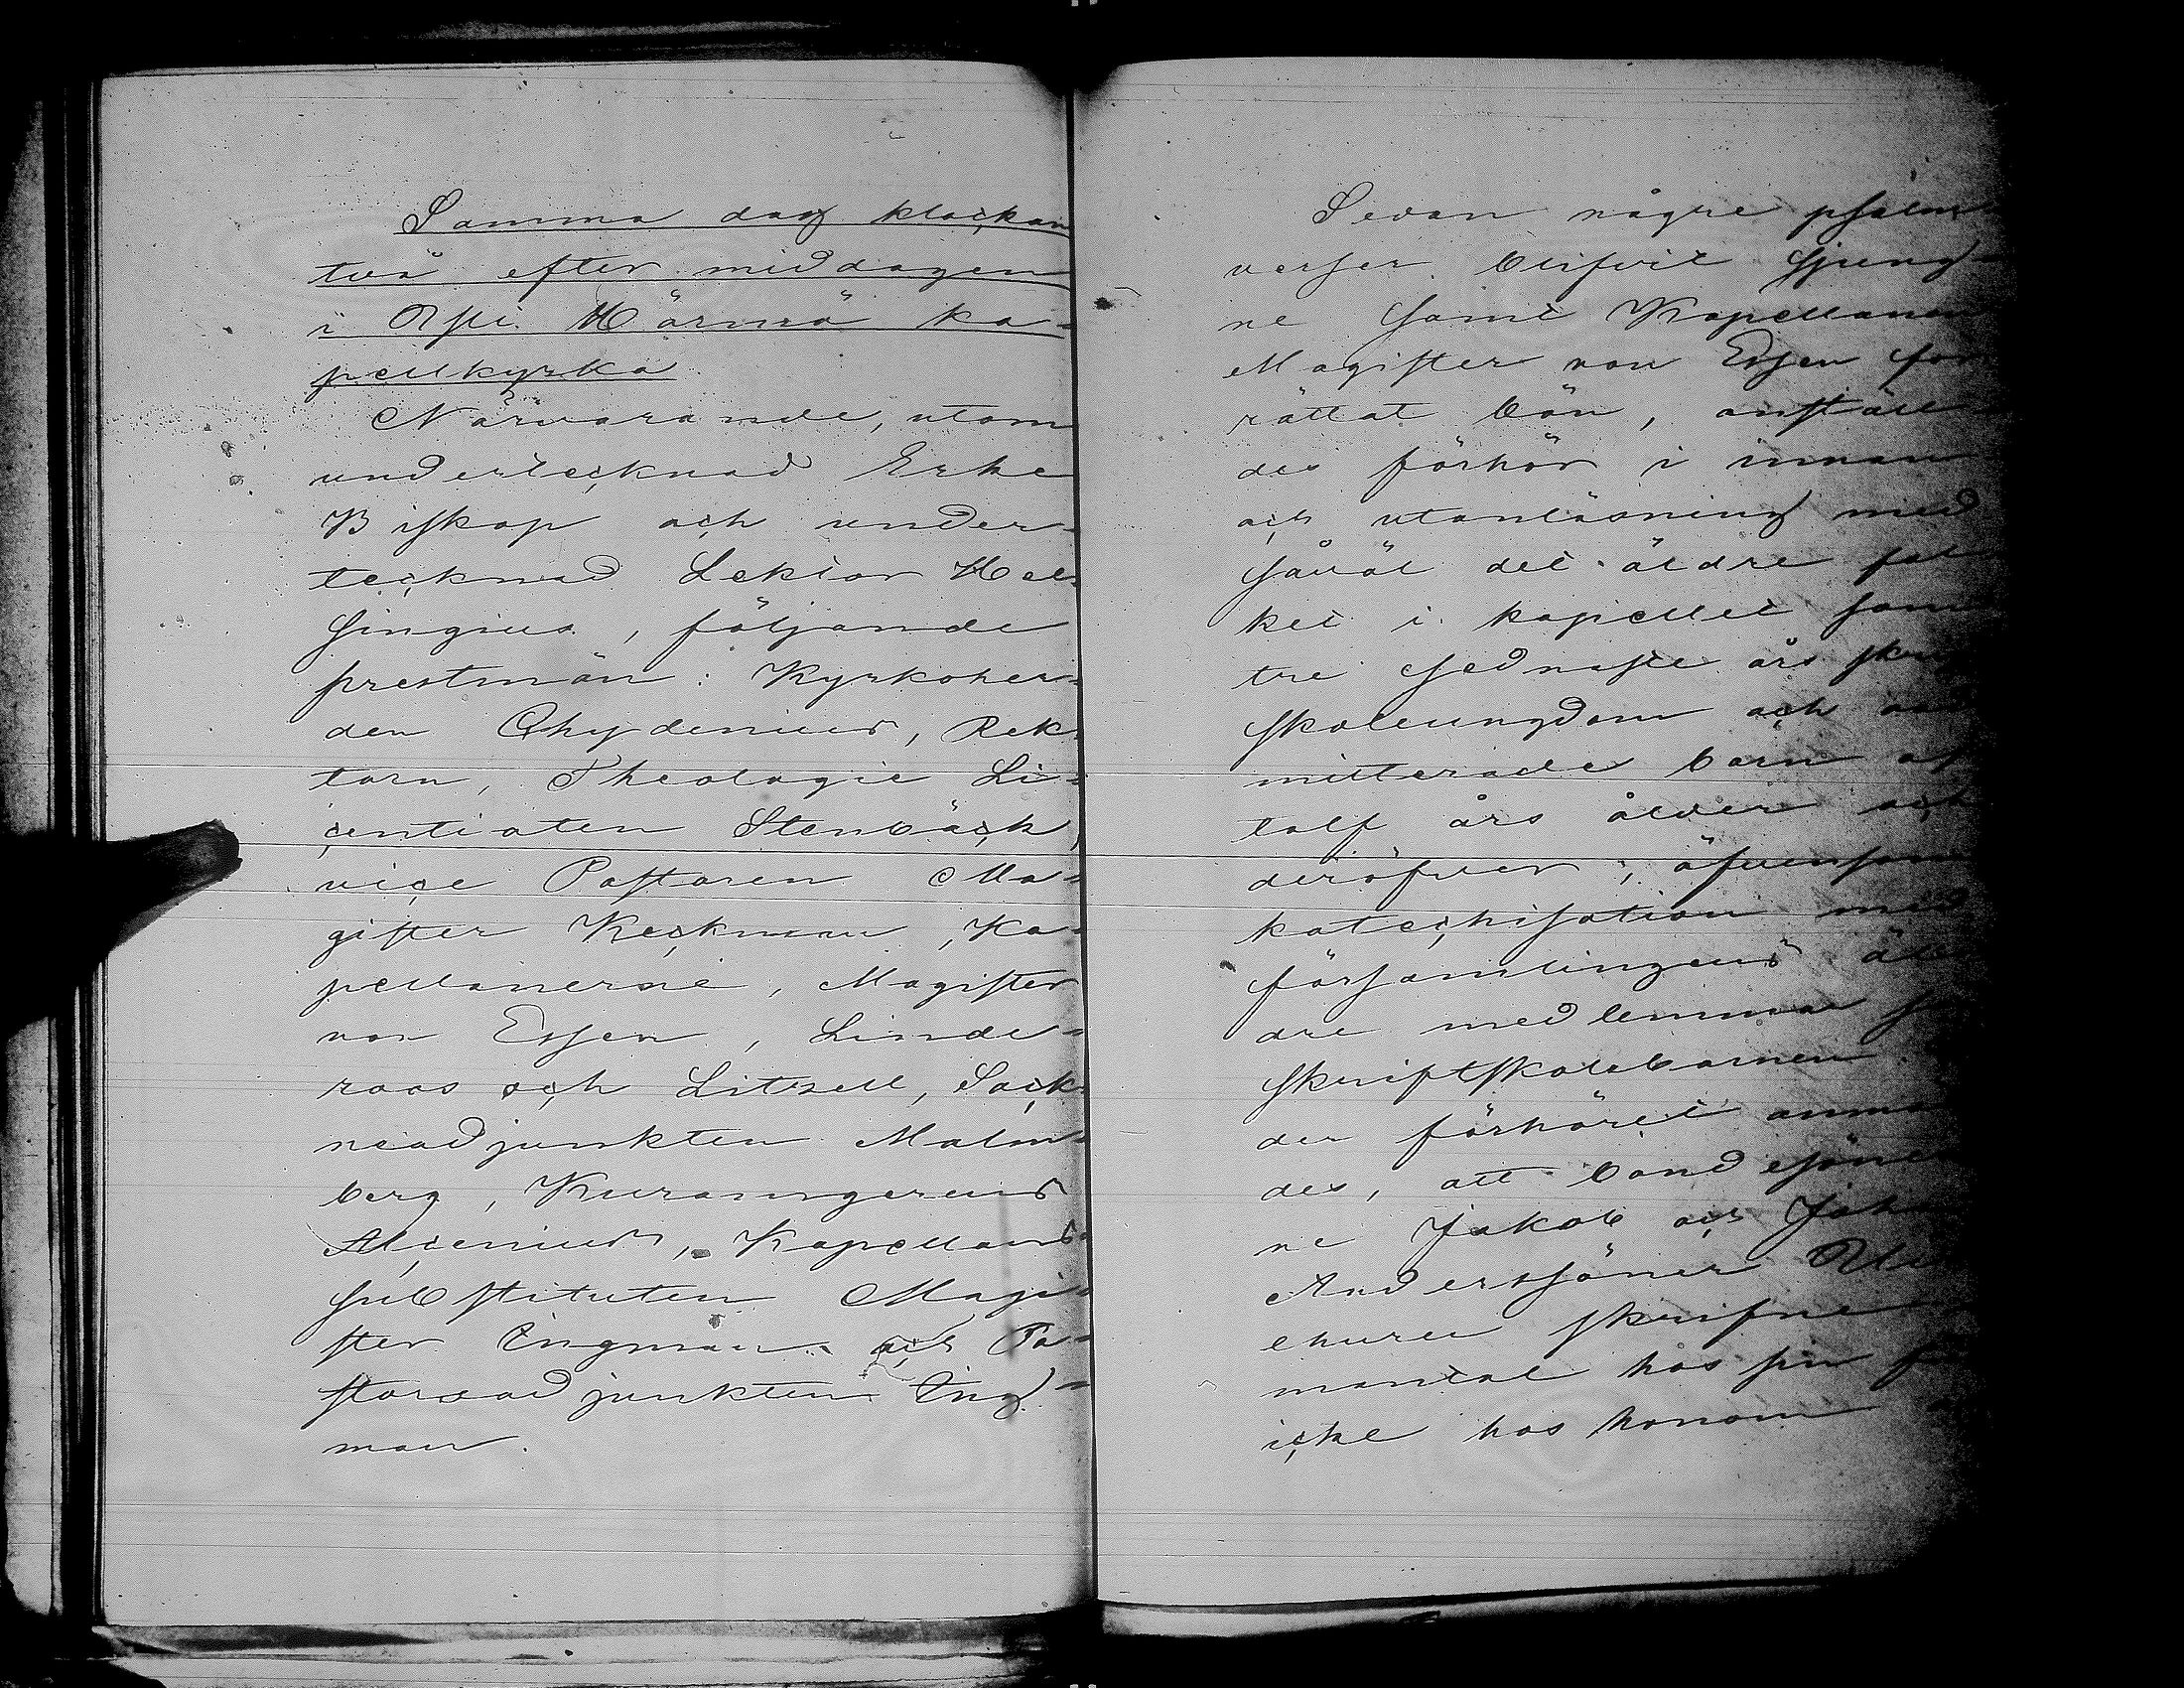 Samma dag klockan
två efter middagen
i Ylihärmä ka-
pellkyrka
Närvarande, utom
undertecknad Erke
Biskop och under-
tecknad Lektor Hel-
singius, följande
prestmän: Kyrkoher-
den Chydenius, Rek-
torn, Theologie Li-
centiaten Stenbäck,
vice Pastoren Ma-
gister Keckman, Ka-
pellanerne, Magister
von Essen, Linde-
roos och Litzell, Sock-
neadjunkten Malm-
berg, Kuraangerens
Alcenius, Kapellans
substituten Magi-
ster Engman och Pa-
storsadjunkten Eng-
man.
Sedan någre psalm-
verser blifvit sjung-
ne samt Kapellanen
Magister von Essen för-
rättat bön, anställ-
des förhör i innan
och utanläsning med
såväl det äldre fol-
ket i kapellet som
tre sednaste års
skoleungdom och
mitterade barn af
tolf års ålder och
deröfver, äfvensom
katechisation med
församlingens äl-
dre medlemmar
skriftskolebarnen.
der förhöret anmä
des, att bondesöner
ne Jakob och Joha
Anderssöner
ehuru skrifne
mantal hos sin
icke hos honom